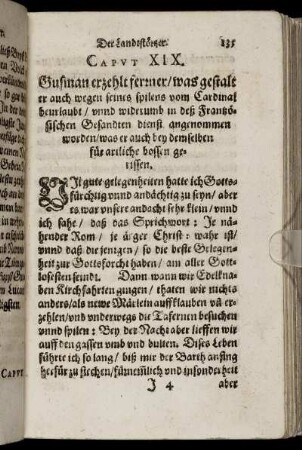 Der Landstörtzer. 135
CAPVT XIX.
Gusman erzehlt ferrner/was gestalt
er auch wegen seines spilens vom Cardinal
beurlaubt/vnnd widerumb in deß Frantzö-
sischen Gesandten dienst angenommen
worden/was er auch bey demselben
für artliche bossen ge-
rissen.
VIl gute gelegenheiten hatte ich Gotts-
förchtig vnnd andächtig zu seyn/aber
es war vnsere andacht sehr klein/vnnd
ich sahe/daß das Sprichwort: Je nä-
hender Rom/je ärger Christ: wahr ist/
vnnd daß die jenigen/so die beste Gelegen-
heit zur Gottsforcht haben/am aller Gott-
losesten seindt. Dann wann wir Edelkna-
ben Kirchfahrten giengen/thaten wir nichts
anders/als newe Märlein auffklauben vñ er-
zehlen/vnd vnderwegs die Tafernen besuchen
vnnd spilen: Bey der Nacht aber lieffen wir
auff den gassen vmb vnd bulten. Dises Leben
führte ich so lang/biß mir der Barth anfing
herfür zu stechen/fürnemlich vnd insonderheit
J 4 aber
CAPVT